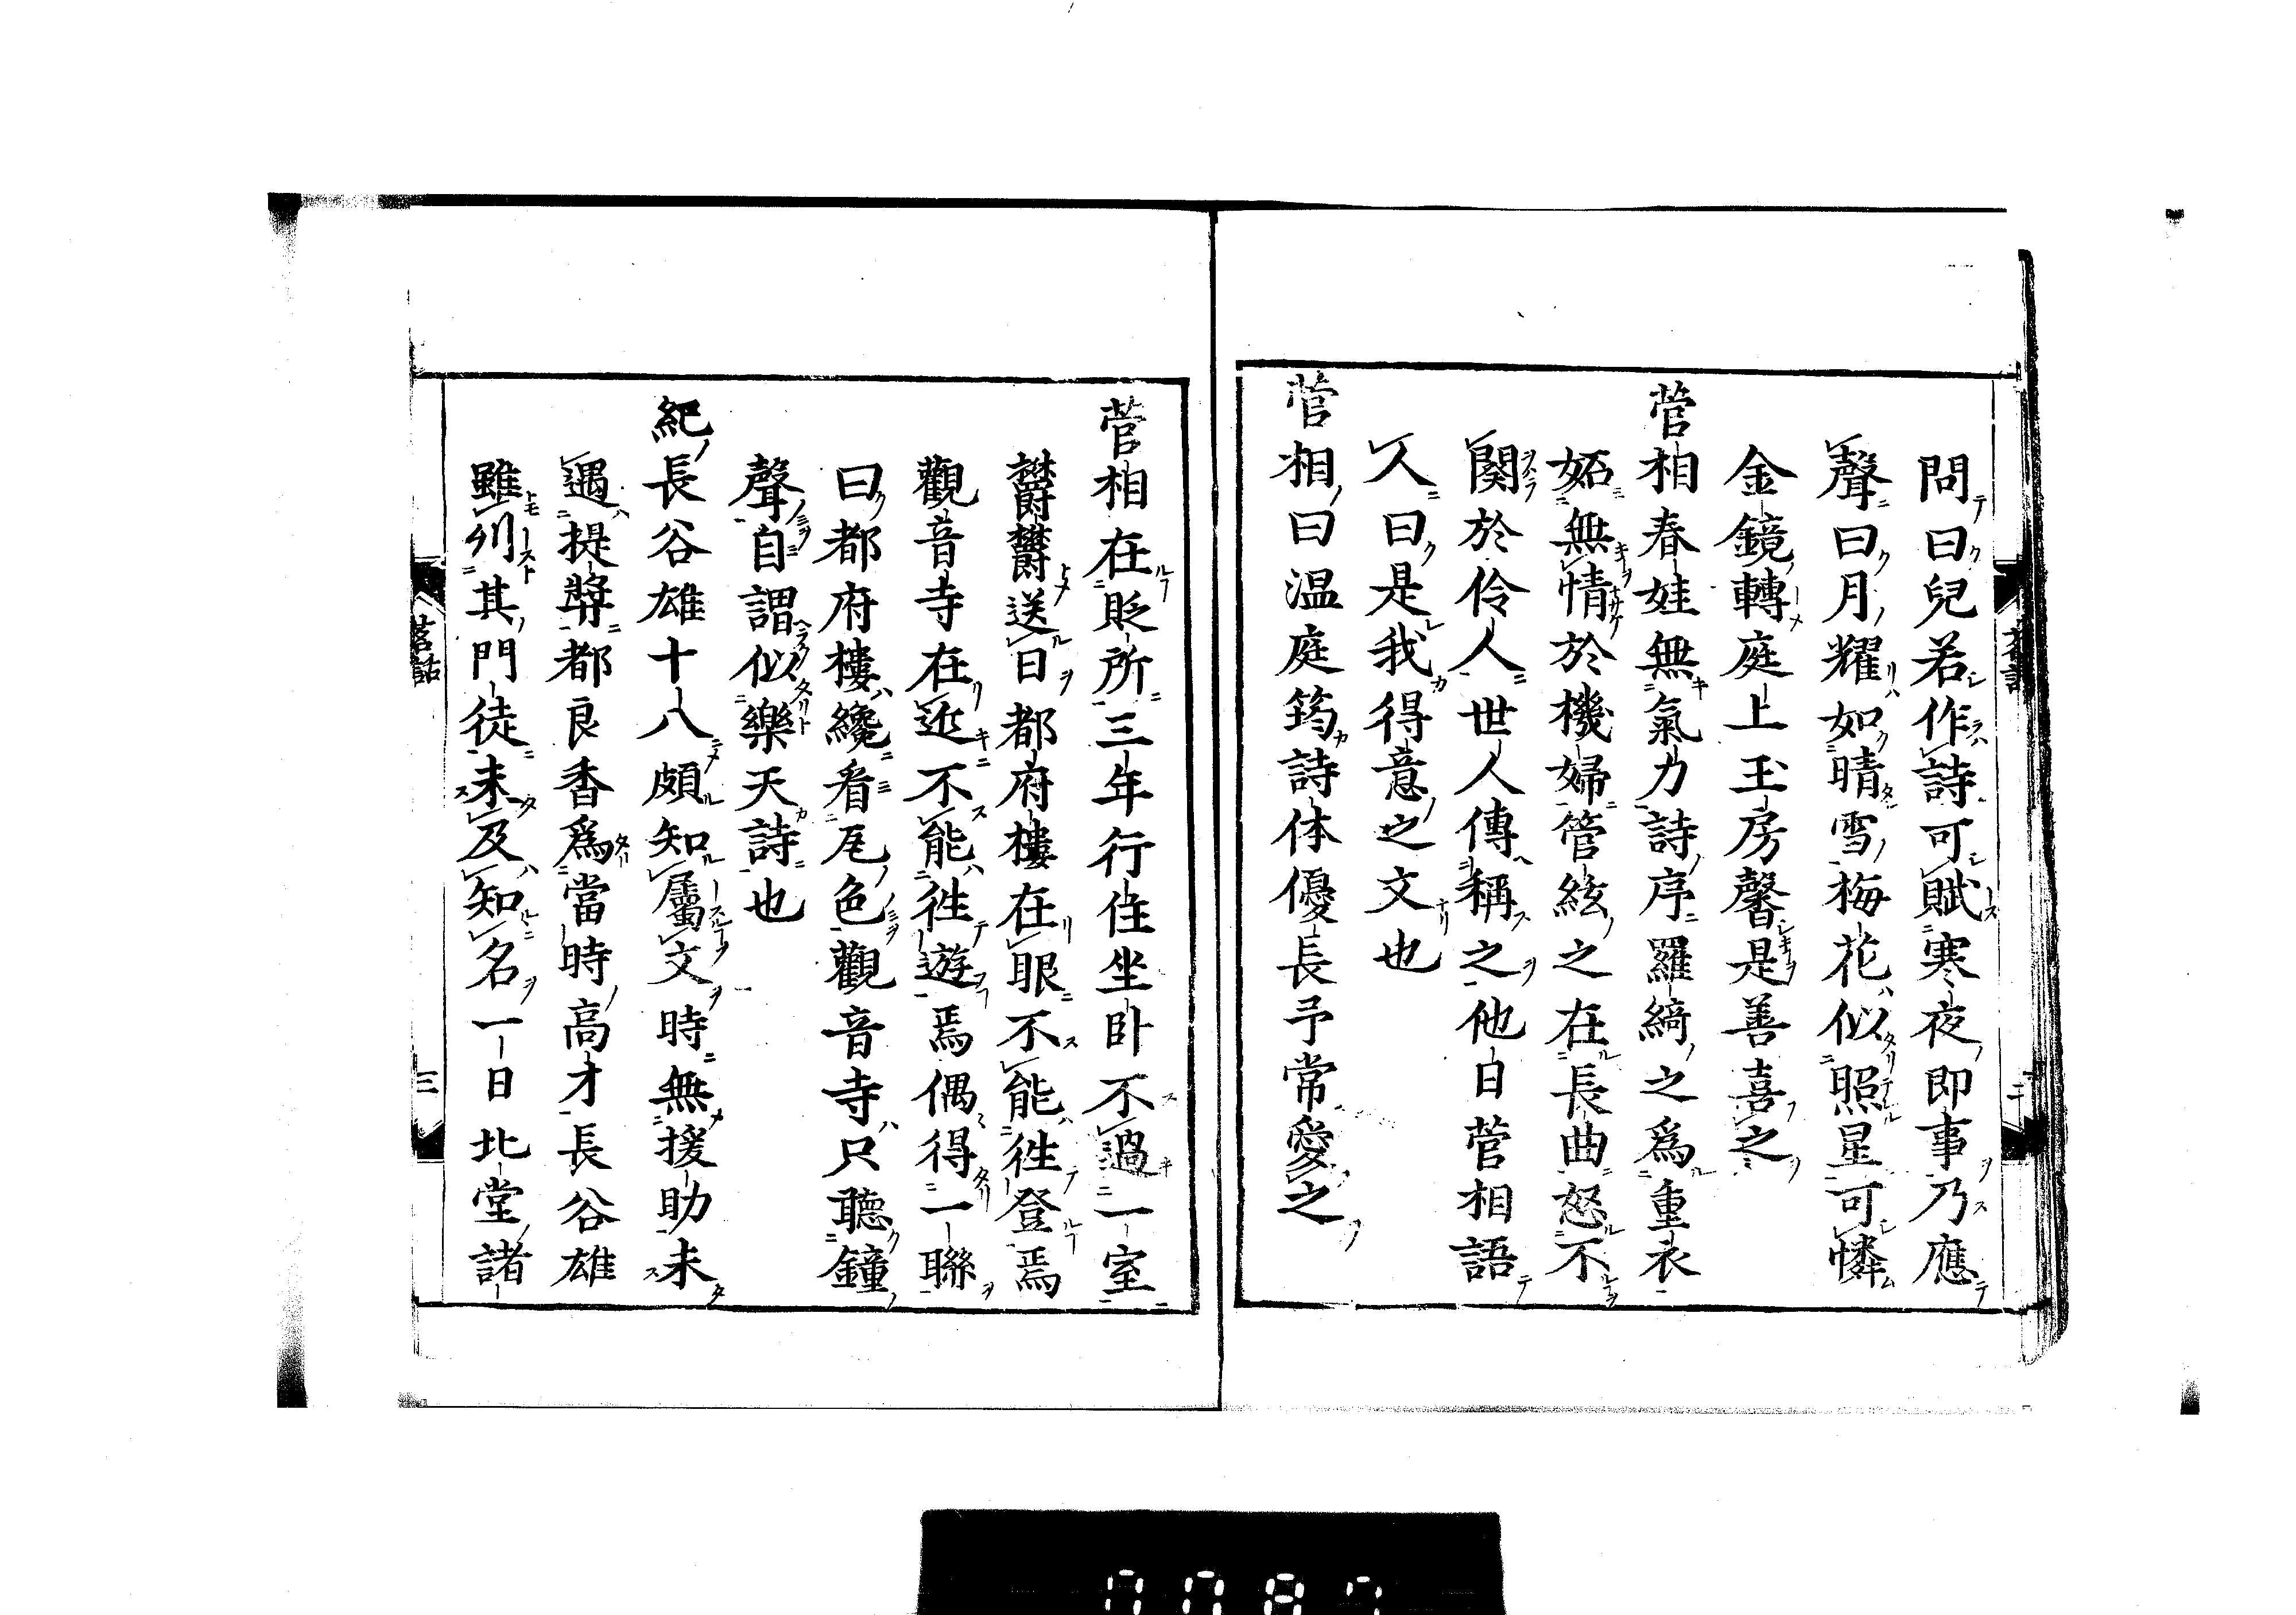 問曰兒若作詩可賦寒夜即事乃應
聲曰月耀如晴雪梅花似照星可憐
金鏡轉庭上玉房馨是善喜之
菅相春娃無氣力詩序羅綺之爲重衣
妬無情於機婦管絃之在長曲怒不
関於伶人世人傳稱之他日菅相語
人曰是我得意之文也
菅相曰温庭筠詩体優長予常愛之
菅相在貶所三年行住坐卧不過一室
欝欝送日都府樓在眼不能徃登焉
觀音寺在近不能徃遊焉偶得一聯
曰都府樓纔看瓦色觀音寺只聽鐘
聲自謂似樂天詩也
紀長谷雄十八頗知屬文時無援助未
遇提奬都良香爲當時高才長谷雄
雖列其門徒未及知名一日北堂諸
茗話
三